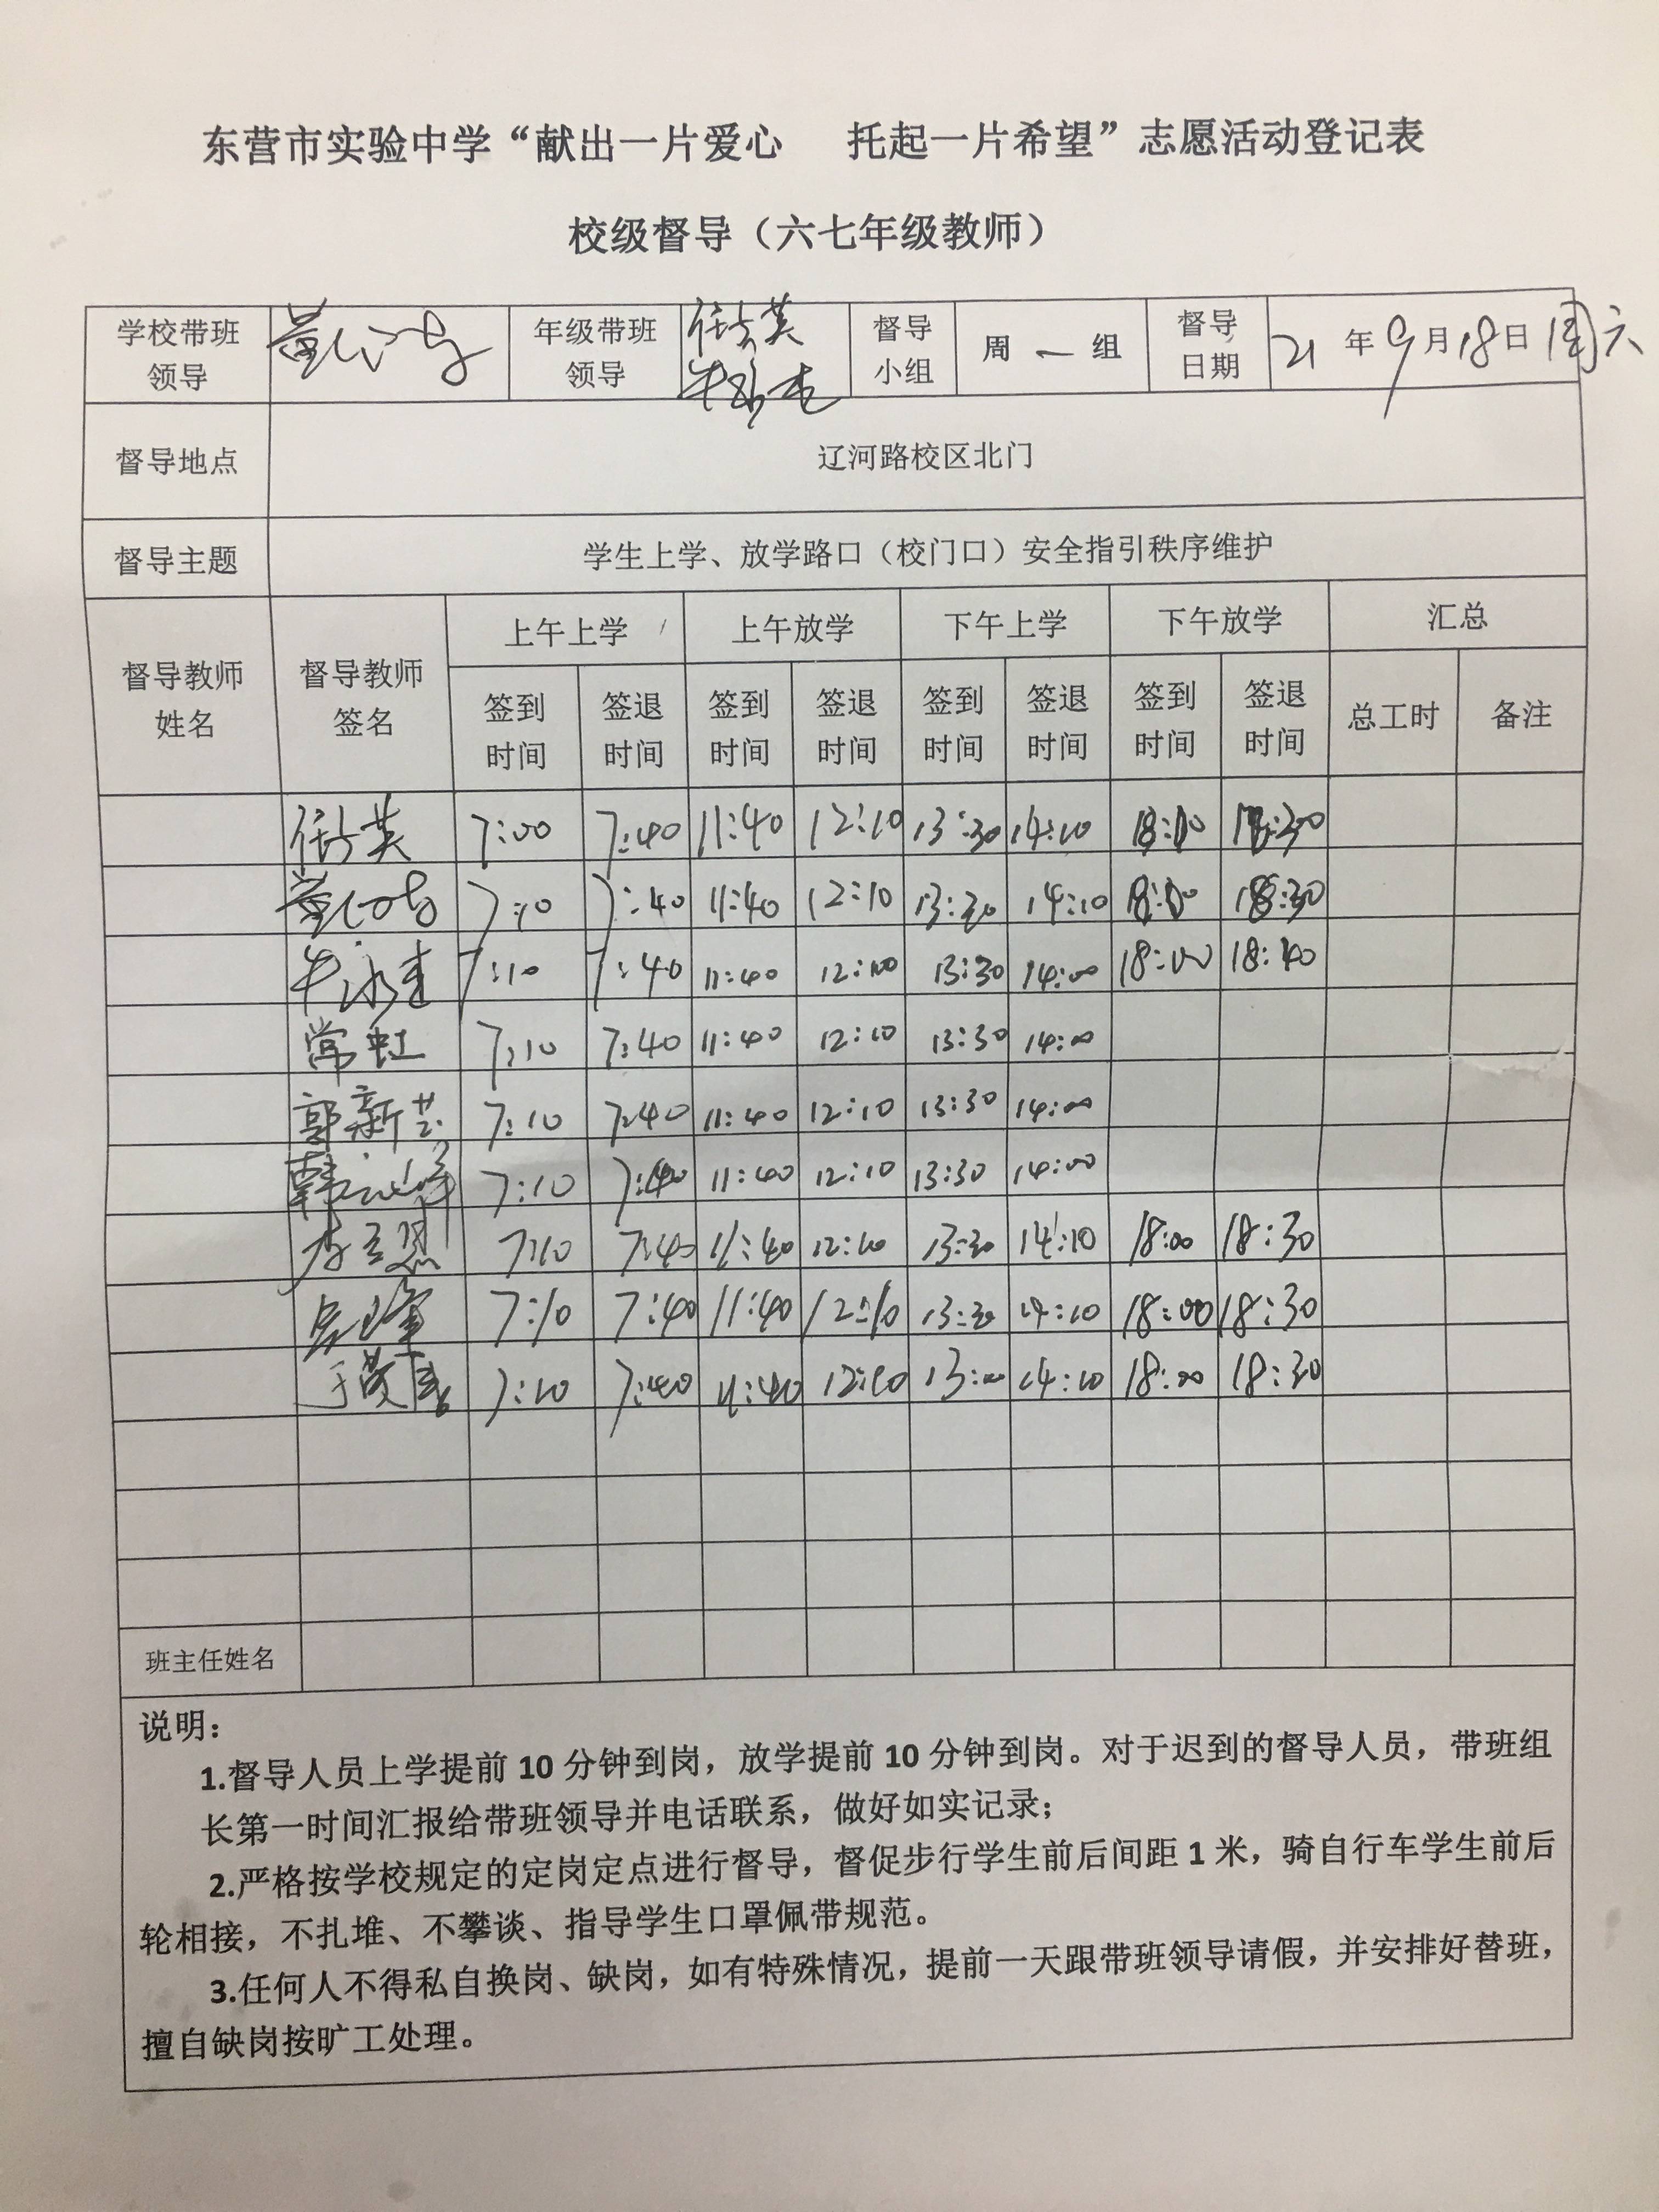 东营市实验中学“献出一片爱心 托起一片希望”志愿活动登记表
校级督导（六七年级教师）
学校带班领导 年级带班领导 督导小组 周一组 督导日期 21年9月18日 周六
督导地点 辽河路校区北门
督导主题 学生上学、放学路口（校门口）安全指引秩序维护
督导教师姓名 督导教师签名 上午上学 上午放学 下午上学 下午放学 汇总
签到时间 签退时间 签到时间 签退时间 签到时间 签退时间 签到时间 签退时间 总工时 备注
7:00 7:40 11:40 12:10 13:30 14:10 18:30
7:10 7:40 11:40 12:10 13:30 14:10 18:30
7:10 7:40 11:40 12:00 13:30 14:00 18:00 18:40
常虹 7:10 7:40 11:40 12:10 13:30 14:00
郭新芸 7:10 7:40 11:40 12:10 13:30 14:00
7:10 7:40 11:40 12:10 13:30 14:00
7:10 7:40 11:40 12:10 13:30 14:10 18:00 18:30
7:10 7:40 11:40 12:10 13:30 14:10 18:00 18:30
7:10 7:40 11:40 12:10 14:10 18:00 18:30
班主任姓名
说明：
1.督导人员上学提前 10 分钟到岗，放学提前 10 分钟到岗。对于迟到的督导人员，带班组
长第一时间汇报给带班领导并电话联系，做好如实记录；
2.严格按学校规定的定岗定点进行督导，督促步行学生前后间距 1 米，骑自行车学生前后
轮相接，不扎堆、不攀谈、指导学生口罩佩带规范。
3.任何人不得私自换岗、缺岗，如有特殊情况，提前一天跟带班领导请假，并安排好替班，
擅自缺岗按旷工处理。